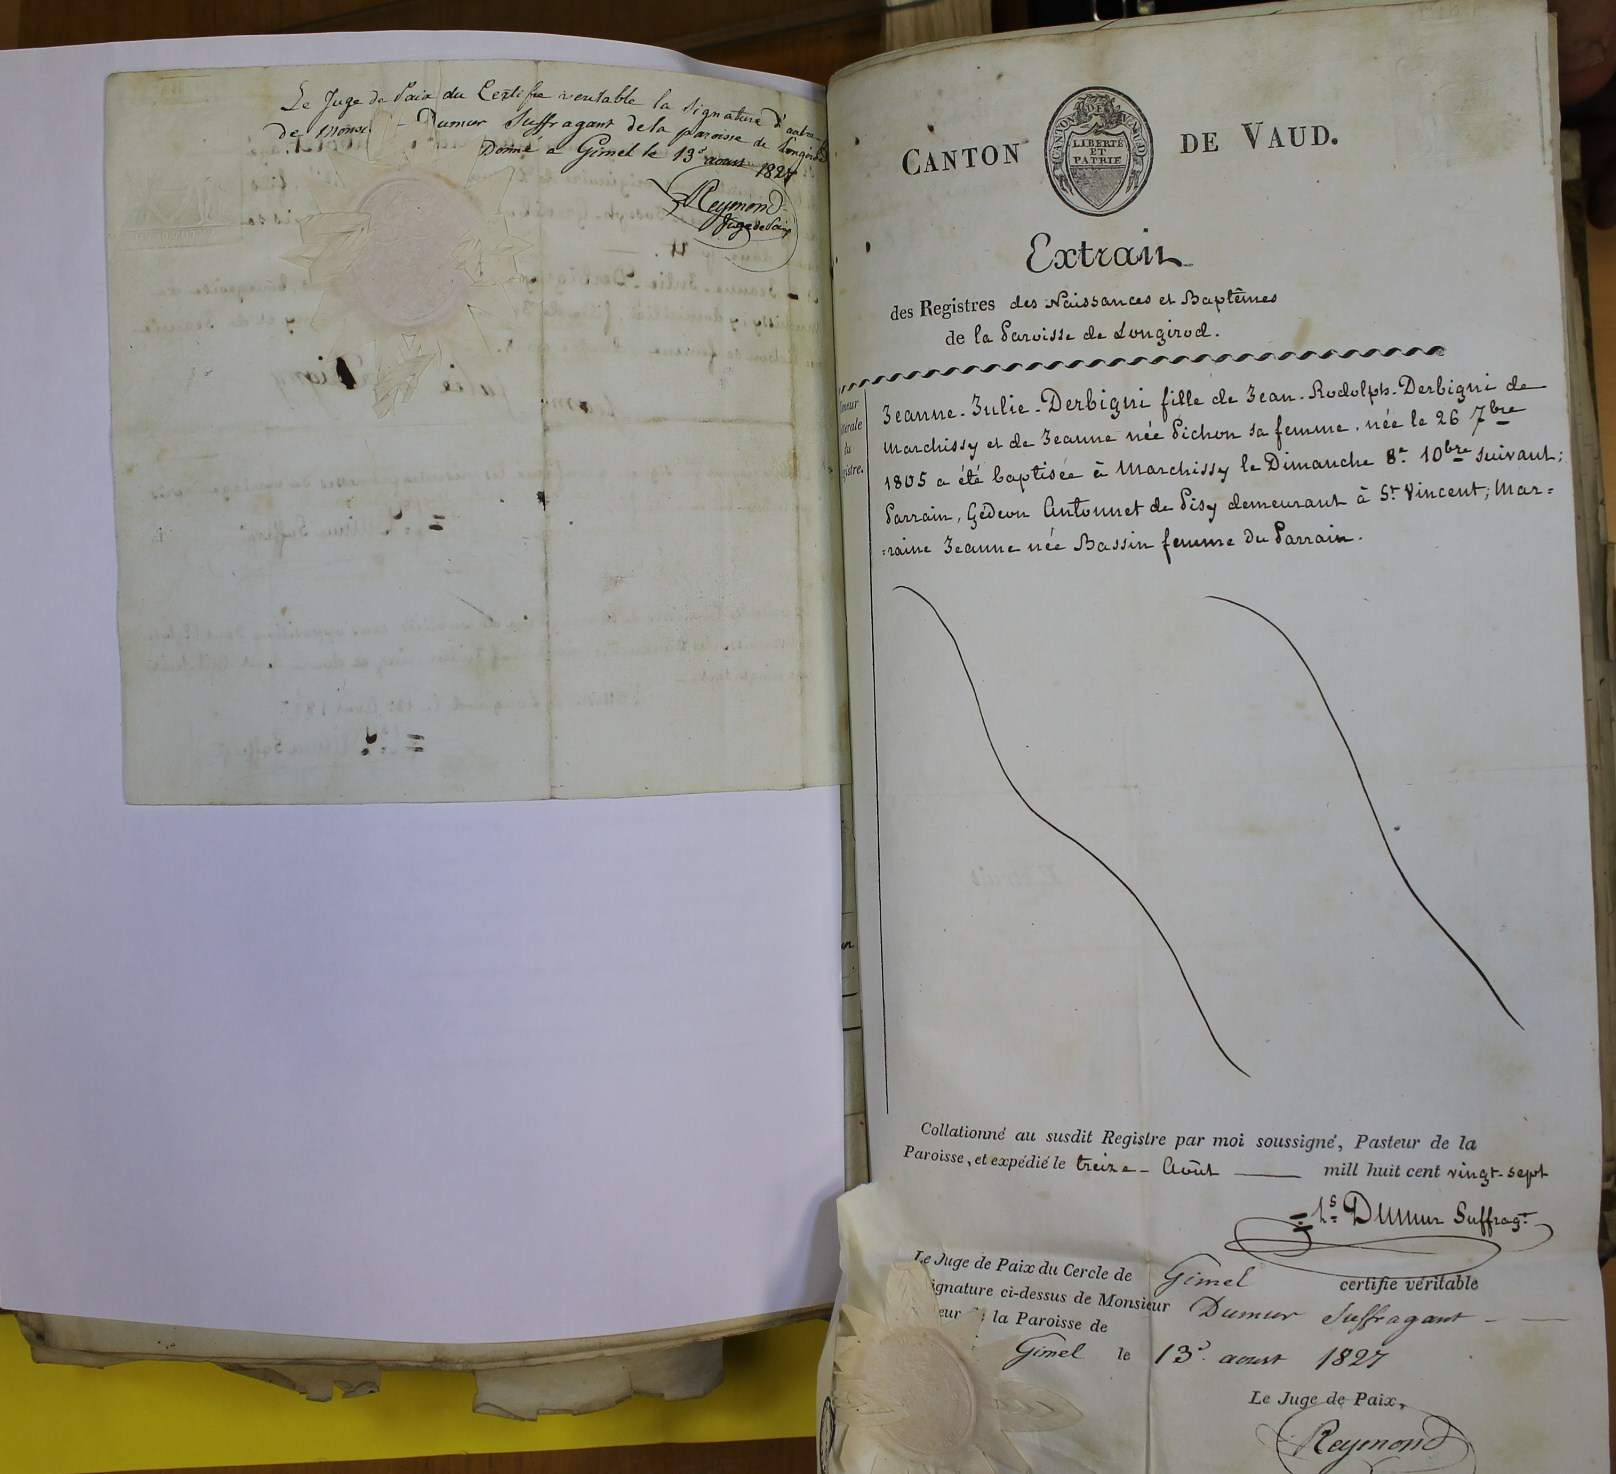 Le Juge de Paix du Certifie veritable la signature d'autre
de Monsr - Dumur Suffragant de la paroisse de Longirod
Donné à Gimel le 13e aoust 1827
Reymond
Juge de Paix
CANTON DE VAUD.
CANTON DE VAUD
LIBERTÉ
ET
PATRIE
Extrait
des Registres des Naissances et Baptêmes
de la Paroisse de Longirod.
Jeanne-Julie-Derbigni fille de Jean-Rodolph-Derbigni de
Marchissy et de Jeanne née Pichon sa femme, née le 26 7bre
1805 a été baptisée à Marchissy le Dimanche 8e 10bre suivant;
Parrain, Gédeon Antonnet de Pisy demeurant à St Vincent; Mar=
=raine Jeanne née Bassin femme du Parrain.
Collationné au susdit Registre par moi soussigné, Pasteur de la
Paroisse, et expédié le treize - Août mill huit cent vingt-sept
Ls Dumur Suffragt
Le Juge de Paix du Cercle de Gimel certifie véritable
ignature ci-dessus de Monsieur Dumur Suffragant
eur la Paroisse de
Gimel le 13e aoust 1827
Le Juge de Paix,
Reymond